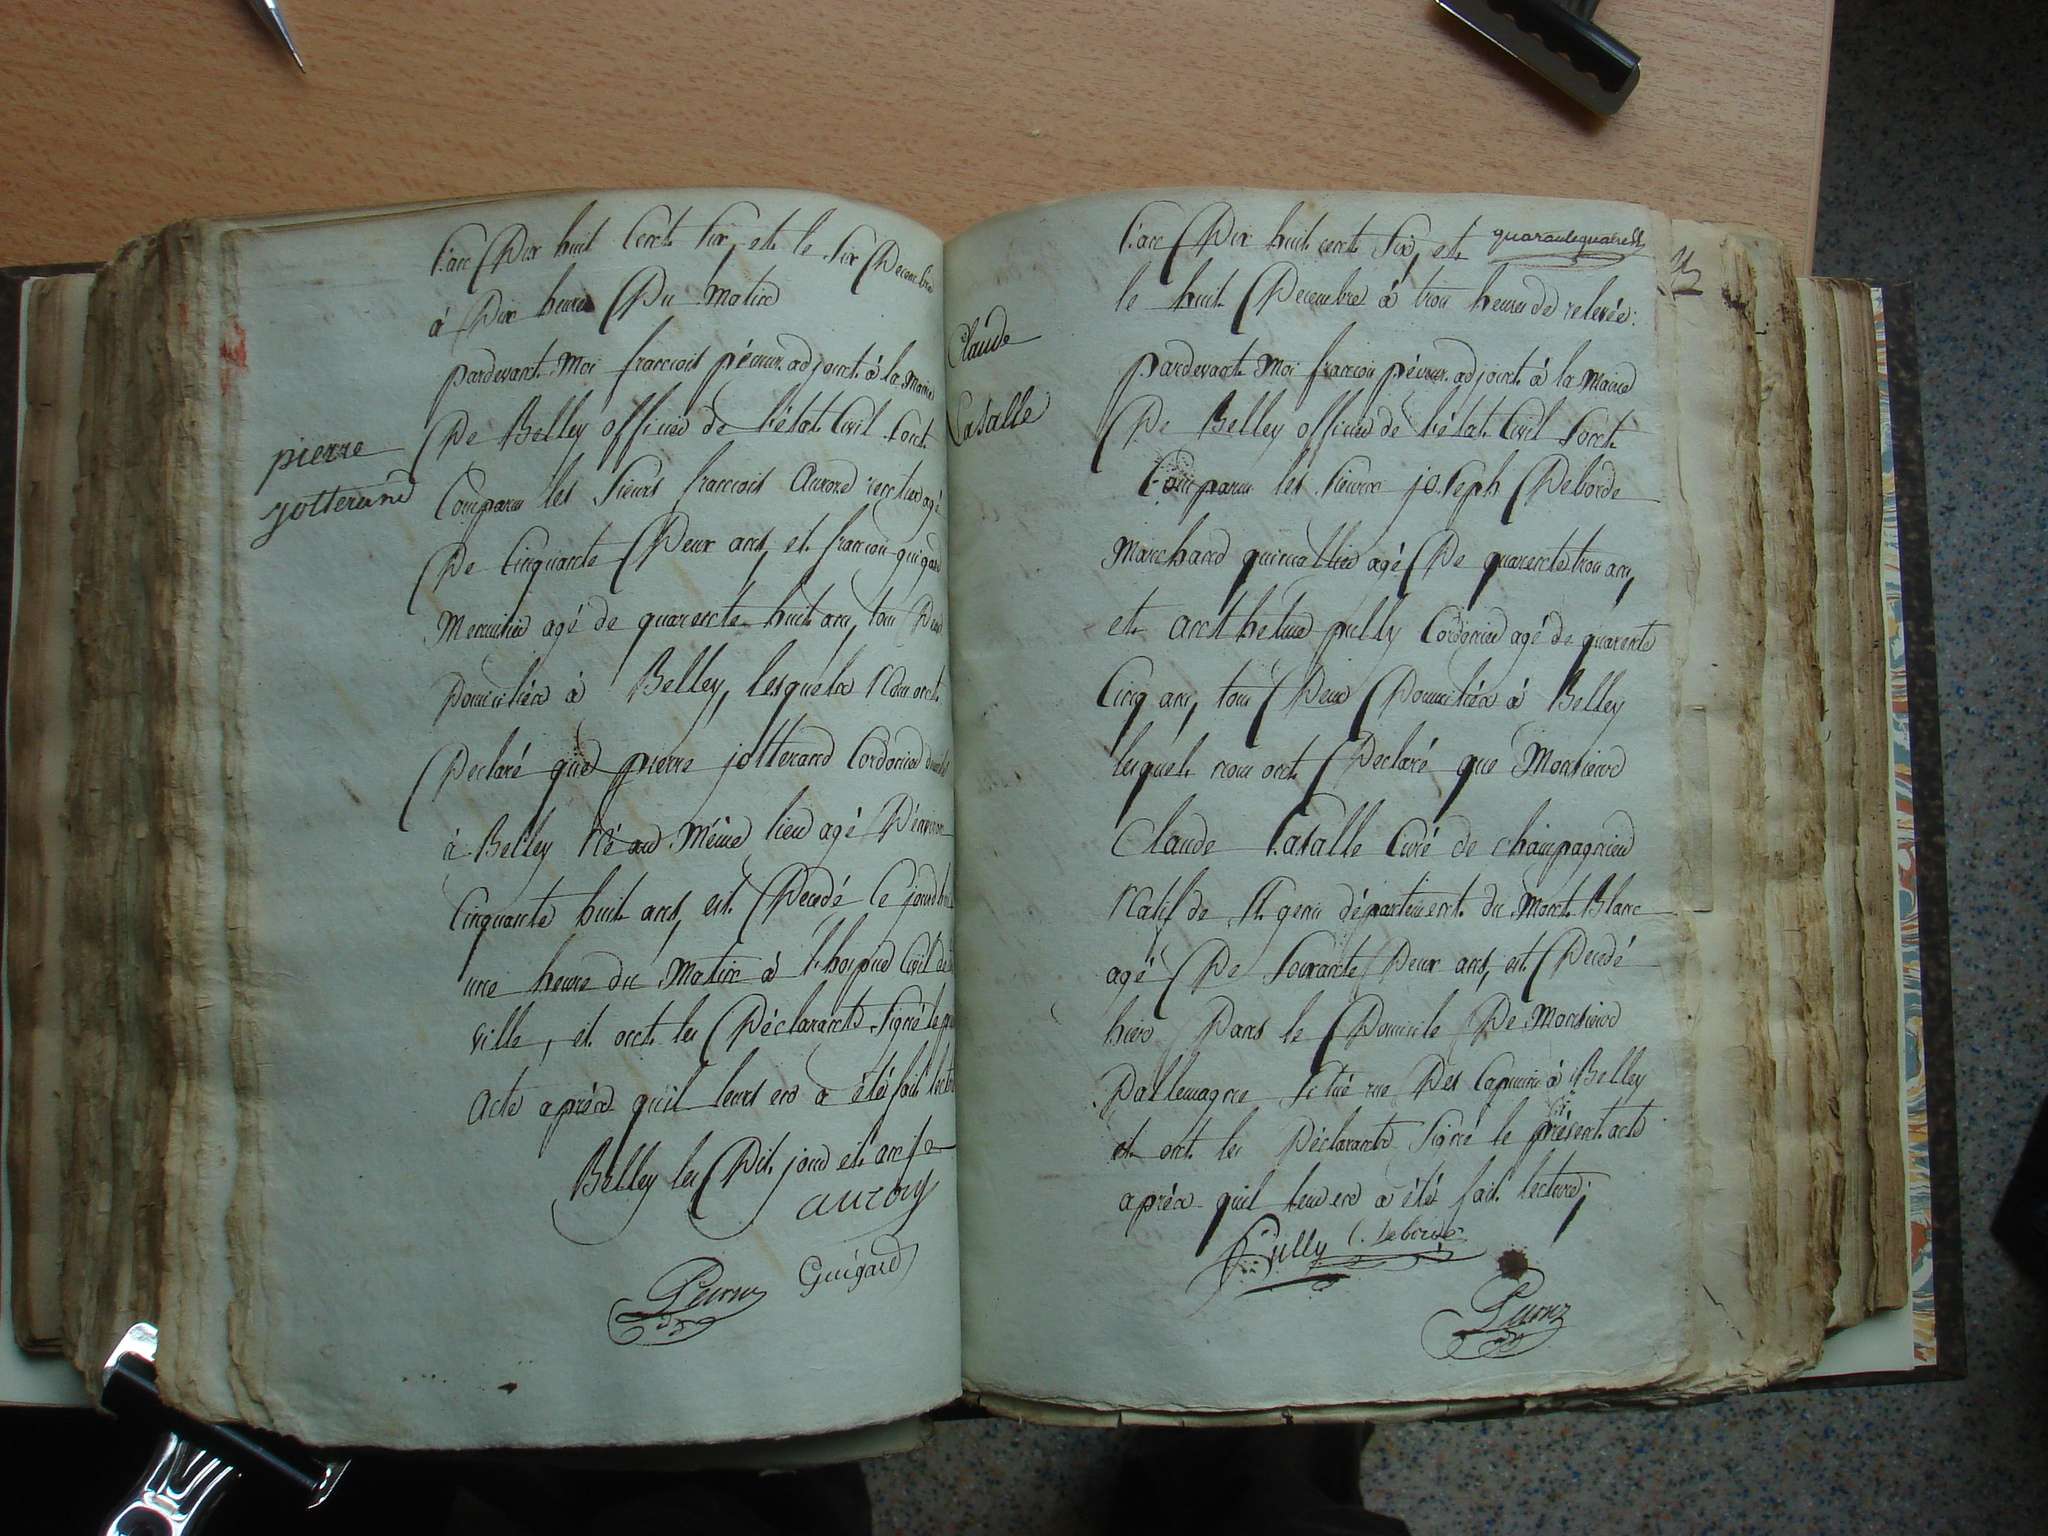 L'an Dix huit Cent Six, et le Six Decembre
à Dix heures Du Matin
pardevant Moi francois péerux adjoint à la Mairie
pierre
jotterand
De Belley officier de l'état Civil Sont
Comparu les Sieurs francois Auroy rentier agé
De Cinquante Deux ans, et francois guigard
Menuisier agé de quarente huit ans, tous Deux
Domiciliés à Belley, lesquels Nous ont
Declaré que pierre jotterand Cordonier
à Belley Né au Même lieu agé D'environ
Cinquante huit ans, est Decedé Ce jourd'hui
une heure du Matin à l'hospice Civil de
ville, et ont les Déclarants Signé le
Acte après qu'il leurs en a été fait lecture
Belley les Dit jour et an
auroy
Guigard
L'an Dix huit cent Six, et
quarantequatre
le huit Decembre à trois heures de relevée.
Claude
Lasalle
pardevant Moi francois adjoint à la Mairie
De Belley officier de l'état Civil Sont
Comparu les Sieurs joseph Deborde
Marchand quincallier agé De quarente trois ans,
et anthelme pully Cordonier agé de quarente
Cinq ans, tous Deux Domiciliés à Belley
lesquels nous ont Declaré que Monsieur
Claude Lasalle Curé de champagneu
Natif de St genix département du Mont Blanc
agé De Soixante Deux ans, est Decedé
hier Dans le Domicile De Monsieur
Dallemagne Situé rue Des Capucins à Belley
et ont les Déclarants Signé le présent acte
après qu'il leur en a été fait lecture,
Pully
Deborde